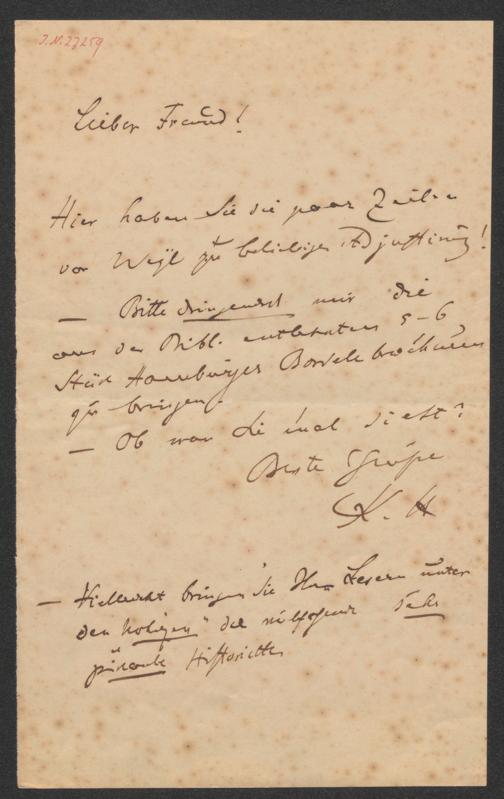 J.N. 27259
Lieber Freund!
Hier haben Sie die paar Zeilen
von Weyl zu beliebiger Adjustirung!
— Bitte dringendst mir die
aus der Bibl. entlehnten 5–6
Stück Hamburger
zu bringen.
— Ob man Sie mal sieht?
Beste Grüße
K. H
— Vielleicht bringen Sie Ihren Lesern unter
den "Notizen" die sehr
pikante Historiette